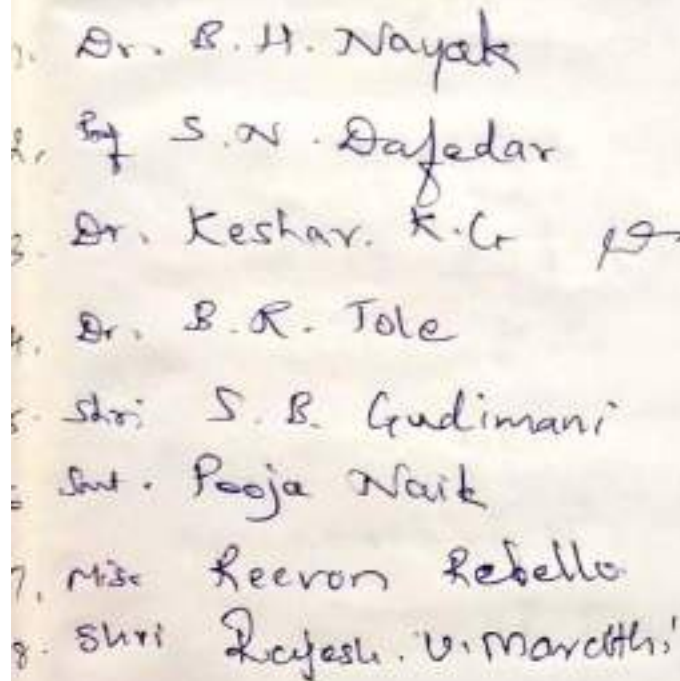 1. Dr. B. H. Nayak
2. Prof S. N. Dafedar
3. Dr. Keshav. K. G
4. Dr. B. R. Tole
5. Shri S. B. Gudimani
6. Smt. Pooja Naik
7. Miss Reevon Rebello
8. Shri Rajesh. V. Marathi